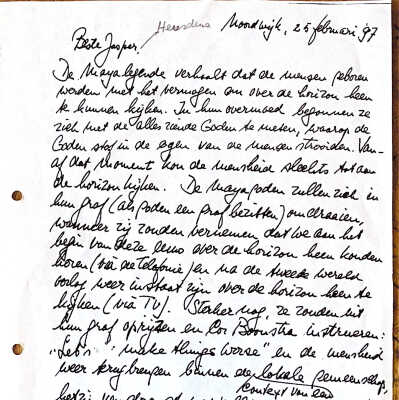 Noordwijk, 25 februari '97
Beste Jasper,
De Mayalegende verhaalt dat de mensen geboren
werden met het vermogen om over de horizon heen
te kunnen kijken. In hun overmoed begonnen ze
zich met de alles ziende Goden te meten, waarop de
Goden stof in de ogen van de mensen strooiden. Van-
af dat moment kon de mensheid slechts tot aan
de horizon kijken. De mayagoden zullen zich in
hun graf (als goden een graf bezitten) omdraaien,
wanneer zij zouden vernemen dat we aan het
begin van deze eeuw over de horizon heen konden
horen (via de telefonie) en na de tweede wereld
oorlog weer in staat zijn over de horizon heen te
kijken (via TV). Sterker nog, ze zouden uit
hun graf oprijzen en Cor Boonstra instrueren:
"Let's make things worse" en de mensheid
weer terugbrengen binnen de lokale gemeenschap,
context van een